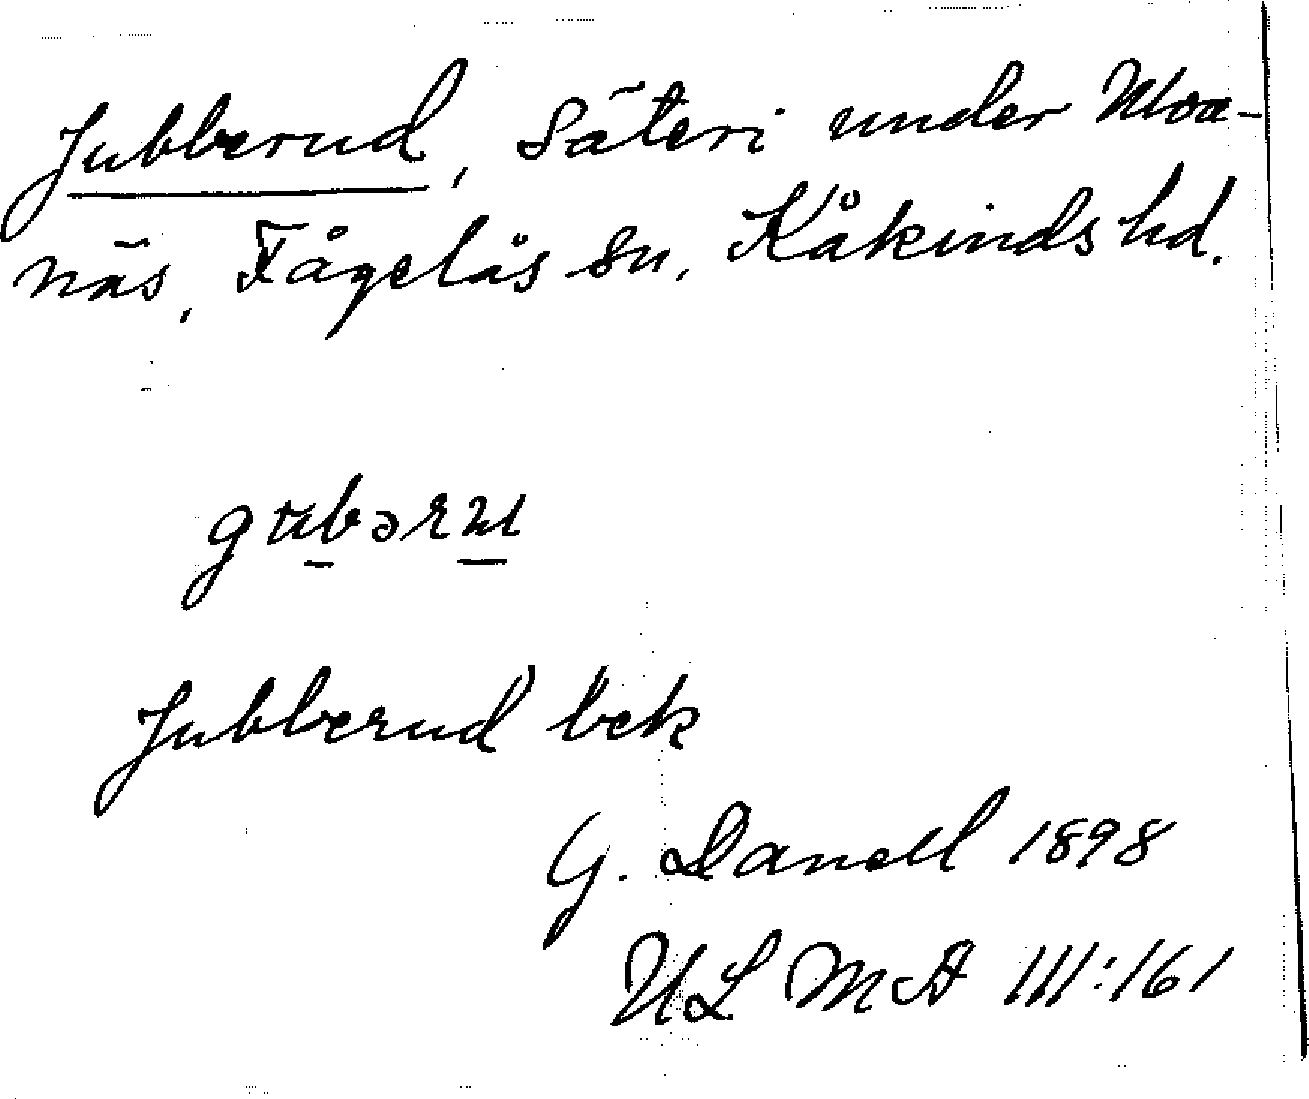 Jubberud, Säteri under Moa-
näs, Fågelås sn, Kåkinds hd.
gubəru
Jubberud bek
G. Danell 1898
ULMA III:161